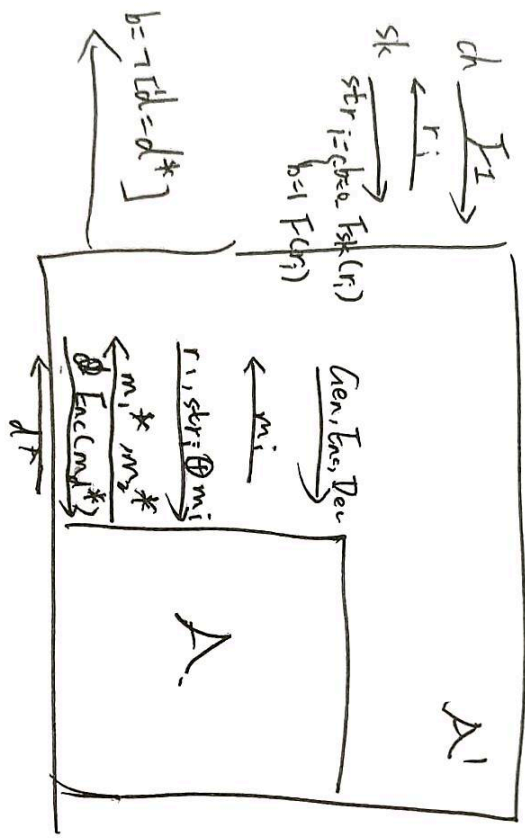 ch
I1
ri
sk
stri = { b=0 Fsk(ri)
b=1 F(ri)
b = ¬[d = d*]
Gen, Enc, Dec
mi
ri, stri ⊕ mi
m1*, m2*
Enc(md*)
d*
A
A'